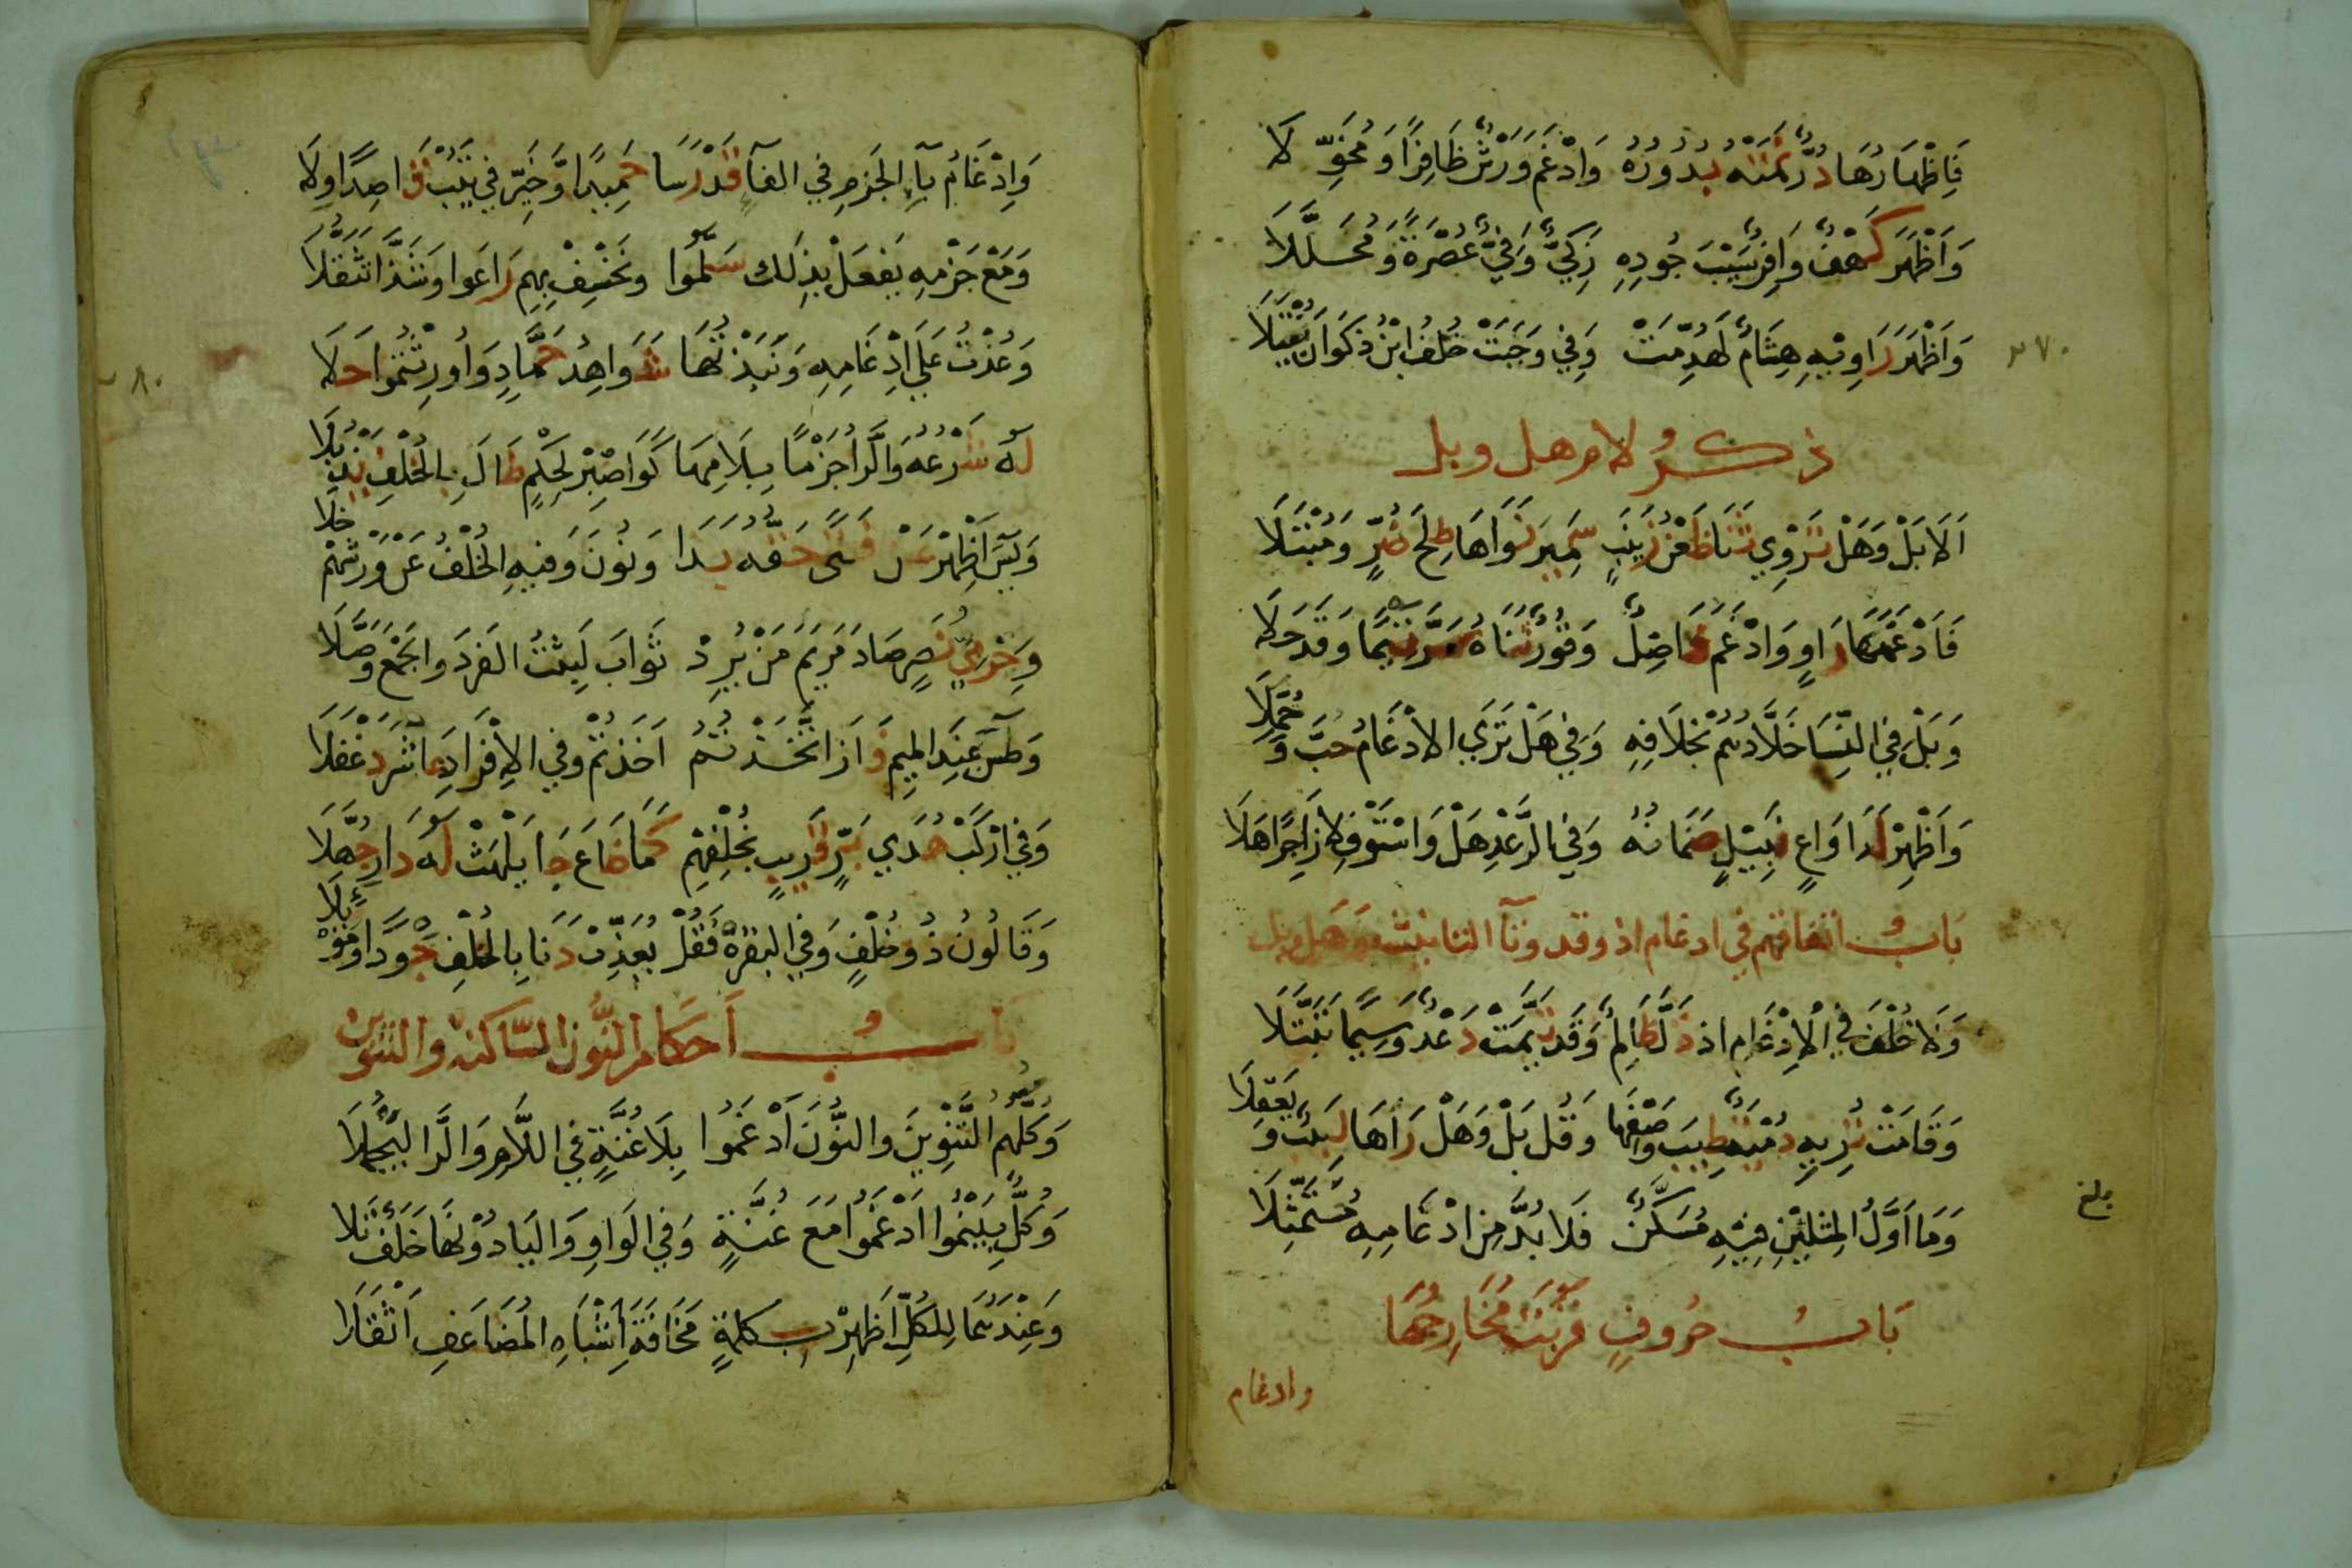 فَإِظْهَارُهَا دُرٌّ نَمَتْهُ بُدُورُهُ وَادْغَمَ وَرْشٌ ظَافِرًا وَمُخَوِّلَا
وَأَظْهَرَ كَهْفٌ وَافِرٌ سَيْبُ جُودِهِ زَكِيٌّ وَفِيٌّ عُصْرَةً وَمُحَلَّلَا
وَأَظْهَرَ رَاوِيهِ هِشَامٌ لَهُدِّمَتْ وَفِي وَجَبَتْ خُلْفُ ابْنِ ذَكْوَانَ يُفْتَلَا
٢٧٠
ذكر لام هل وبل
أَلَا بَلْ وَهَلْ تَرْوِي ثَنَا ظَعْنِ زَيْنَبٍ سَمِيرَ نَوَاهَا طِلْحَ ضُرٍّ وَمُبْتَلَا
فَأَدْغَمَهَا رَاوٍ وَادْغَمَ فَاضِلٌ وَقُورٌ ثَنَاهُ سَرَّ تَيْمًا وَقَدْ حَلَا
وَبَلْ فِي النِّسَا خَلَّادُهُمْ بِخِلَافِهِ وَفِي هَلْ تَرَى الإِدْغَامُ حُبَّ وَحُمِّلَا
وَأَظْهِرْ لَدَا وَاعٍ نَبِيلٍ ضَمَانُهُ وَفِي الرَّعْدِ هَلْ وَاسْتَوْفِ لَا زَاجِرًا هَلَا
بَابُ اتفاقهم في ادغام اذ وقد وتآ التانيث وهل وبل
وَلَا خُلْفَ فِي الْإِدْغَامِ اذ ذَلَّ ظَالِمٌ وَقَدْ تَيَّمَتْ دَعْدٌ وَسِيمًا تَبَتَّلَا
وَقَامَتْ تُرِيهِ دُمْيَةٌ طِيبَ وَصْفِهَا وَقُلْ بَلْ وَهَلْ رَآهَا لَبِيبٌ وَيَعْقِلَا
وَمَا أَوَّلُ الْمِثْلَيْنِ فِيهِ مُسَكَّنٌ فَلَا بُدَّ مِنْ ادْغَامِهِ مُتَمَثِّلَا
بلغ
بَابُ حُرُوفٍ قَرُبَتْ مَخَارِجُهَا
وادغام
وَإِدْغَامُ بَاءِ الْجَزْمِ فِي الفَآ قَدْ رَسَا حَمِيدًا وَخَيِّرْ فِي يَتُبْ قَاصِدًا وِلَا
وَمَعْ جَزْمِهِ يَفْعَلْ بِذَلِكَ سَلَّمُوا وَنَخْسِفْ بِهِمْ رَاعَوا وَشَذَّا تَثَقُّلَا
وَعُذْتُ عَلَى ادْغَامِهِ وَنَبَذْتُهَا شَوَاهِدُ حَمَّادٍ وَاورِثْتُمُوا حَلَا
٢٨٠
لَهُ شَرْعُهُ وَالرَّاءُ جَزْمًا بِلَامِهَا كَوَاصْبِرْ لِحُكْمٍ طَالَ بِالْخُلْفِ يَذْبُلَا
وَيَسَ أَظْهِرْ عَنْ فَتًى حَقُّهُ بَدَا وَنُونَ وَفِيهِ الْخُلْفُ عَنْ وَرْشِهِمْ خَلَا
وَحِرْمِيُّ نَصْرٍ صَادَ مَرْيَمَ مَنْ يُرِدْ ثَوَابَ لَبِثْتُ الفَرْدَ وَالجَمْعَ وَصَّلَا
وَطسَ عِنْدَ الْمِيمِ فَازَ اتَّخَذْتُمُ أَخَذْتُمْ وَفِي الإِفْرَادِ عَاشَرَ دَغْفَلَا
وَفِي ارْكَبْ هُدَى بَرٍّ قَرِيبٍ بِخُلْفِهِمْ كَمَا ضَاعَ جَا يَلْهَثْ لَهُ دَارِ جُهَّلَا
وَقَالُونُ ذُو خُلْفٍ وَفِي البَقَرَهْ فَقُلْ يُعَذِّبْ دَنَا بِالْخُلْفِ جَوْدًا وَمُوبِلَا
بَابُ أَحْكَامِ النُّونِ السَّاكِنَةِ وَالتَّنْوِينِ
وَكُلُّهُمُ التَّنْوِينَ وَالنُّونَ أَدْغَمُوا بِلَا غُنَّةٍ فِي اللَّامِ وَالرَّا لِيَجْمُلَا
وَكُلٌّ بِيَنْمُوا أَدْغَمُوا مَعَ غُنَّةٍ وَفِي الْوَاوِ وَالْيَا دُونَهَا خَلَفٌ تَلَا
وَعِنْدَهُمَا لِلْكُلِّ أَظْهِرْ بِكِلْمَةٍ مَخَافَةَ أَشْبَاهِ الْمُضَاعَفِ أَثْقَلَا